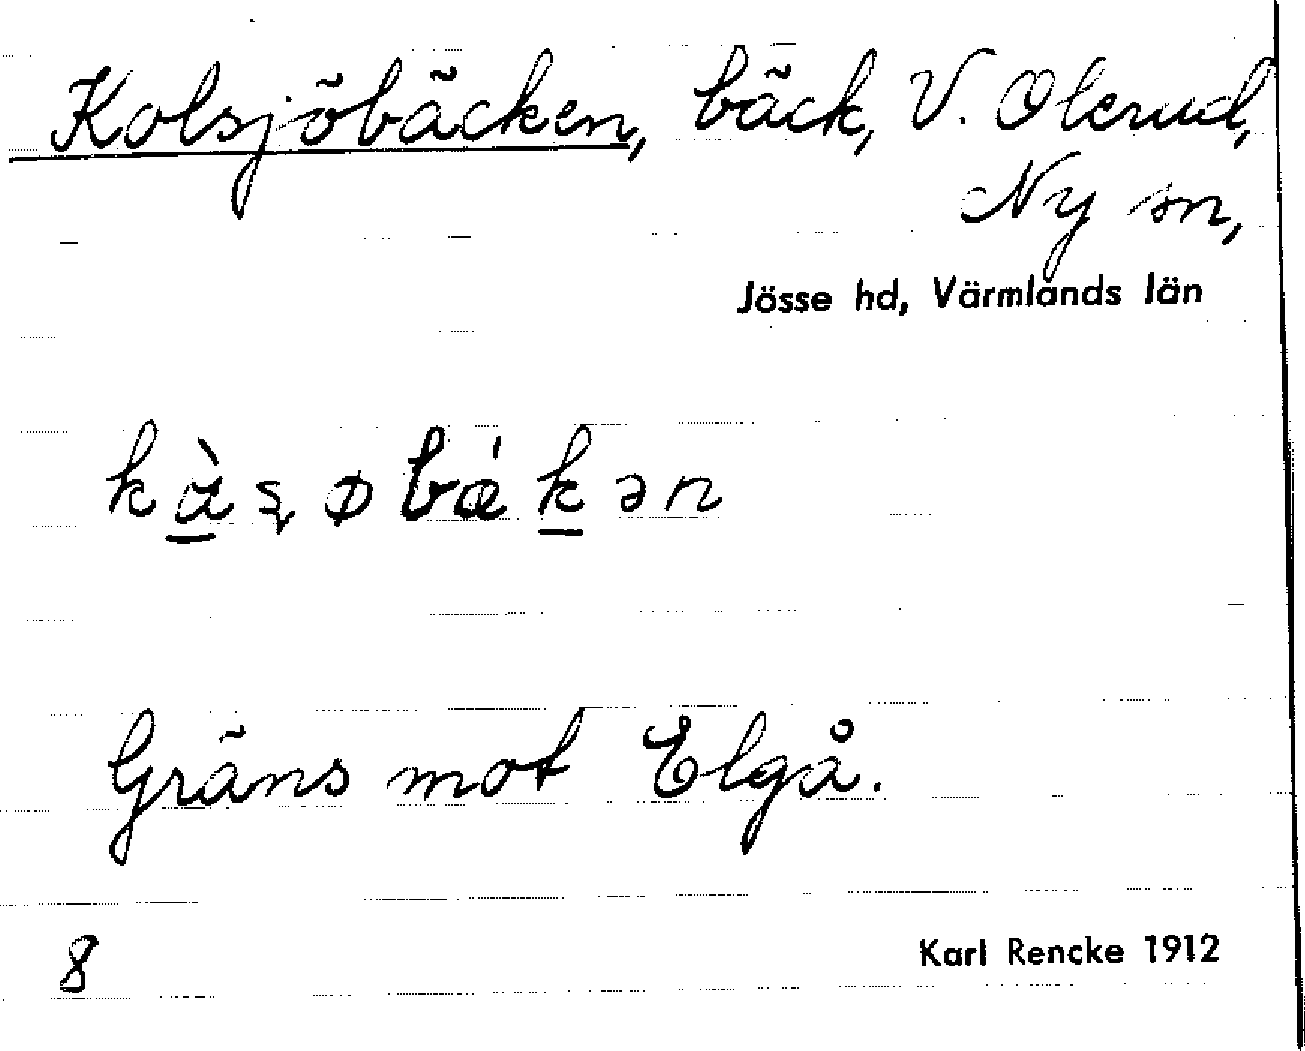 Kolsjöbäcken, bäck, V. Olerud,
Ny sn,
Jösse hd, Värmlands län
Gräns mot Elgå.
8
Karl Rencke 1912